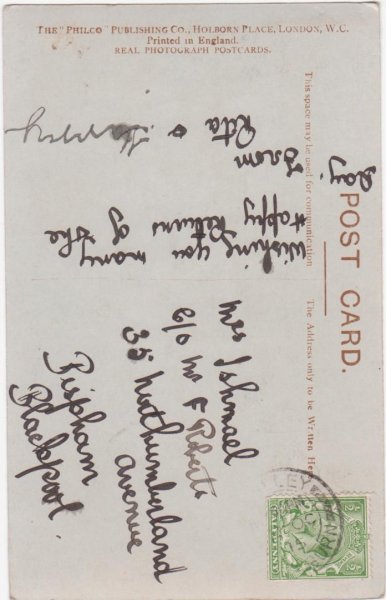 THE "PHILCO" PUBLISHING CO., HOLBORN PLACE, LONDON, W.C.
Printed in England.
REAL PHOTOGRAPH POSTCARDS.
POST CARD.
This space may be used for communication
The Address only to be Written Here
Wishing you many
Happy Returns of the
Day.
From
Rita &
Mrs Ishmael
c/o Mr F Roberts
35 Northumberland
Avenue
Bispham
Blackpool.
HALFPENNY